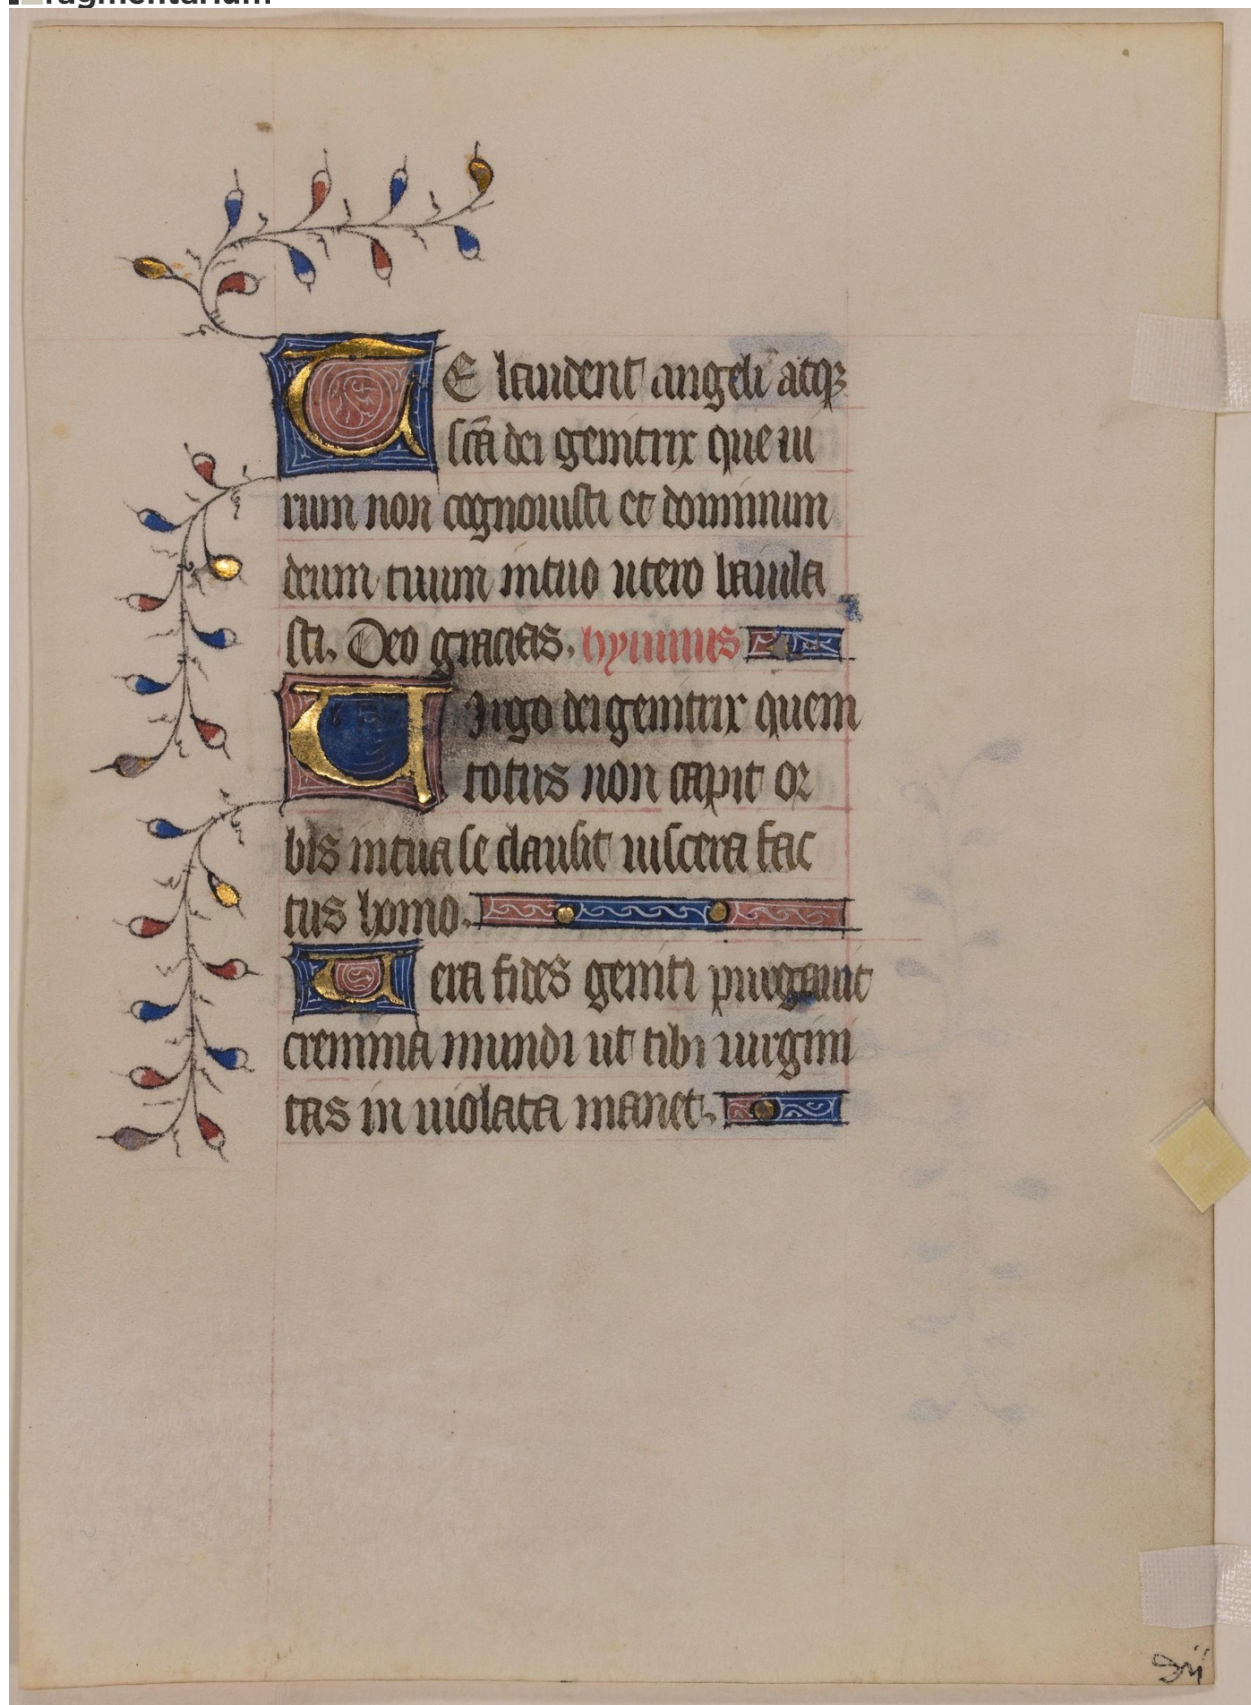 fragmentarium
TE laudent angeli atqꝫ
scā dei genitrix que ui
rum non cognouisti et dominum
deum tuum intuo utero baiula
sti. Deo gracias. hymnus
Uirgo dei genitrix quem
totus non capit or
bis intua se clausit uiscera fac
tus homo.
Uera fides geniti purgauit
cremina mundi ut tibi uirgini
tas in uiolata manet.